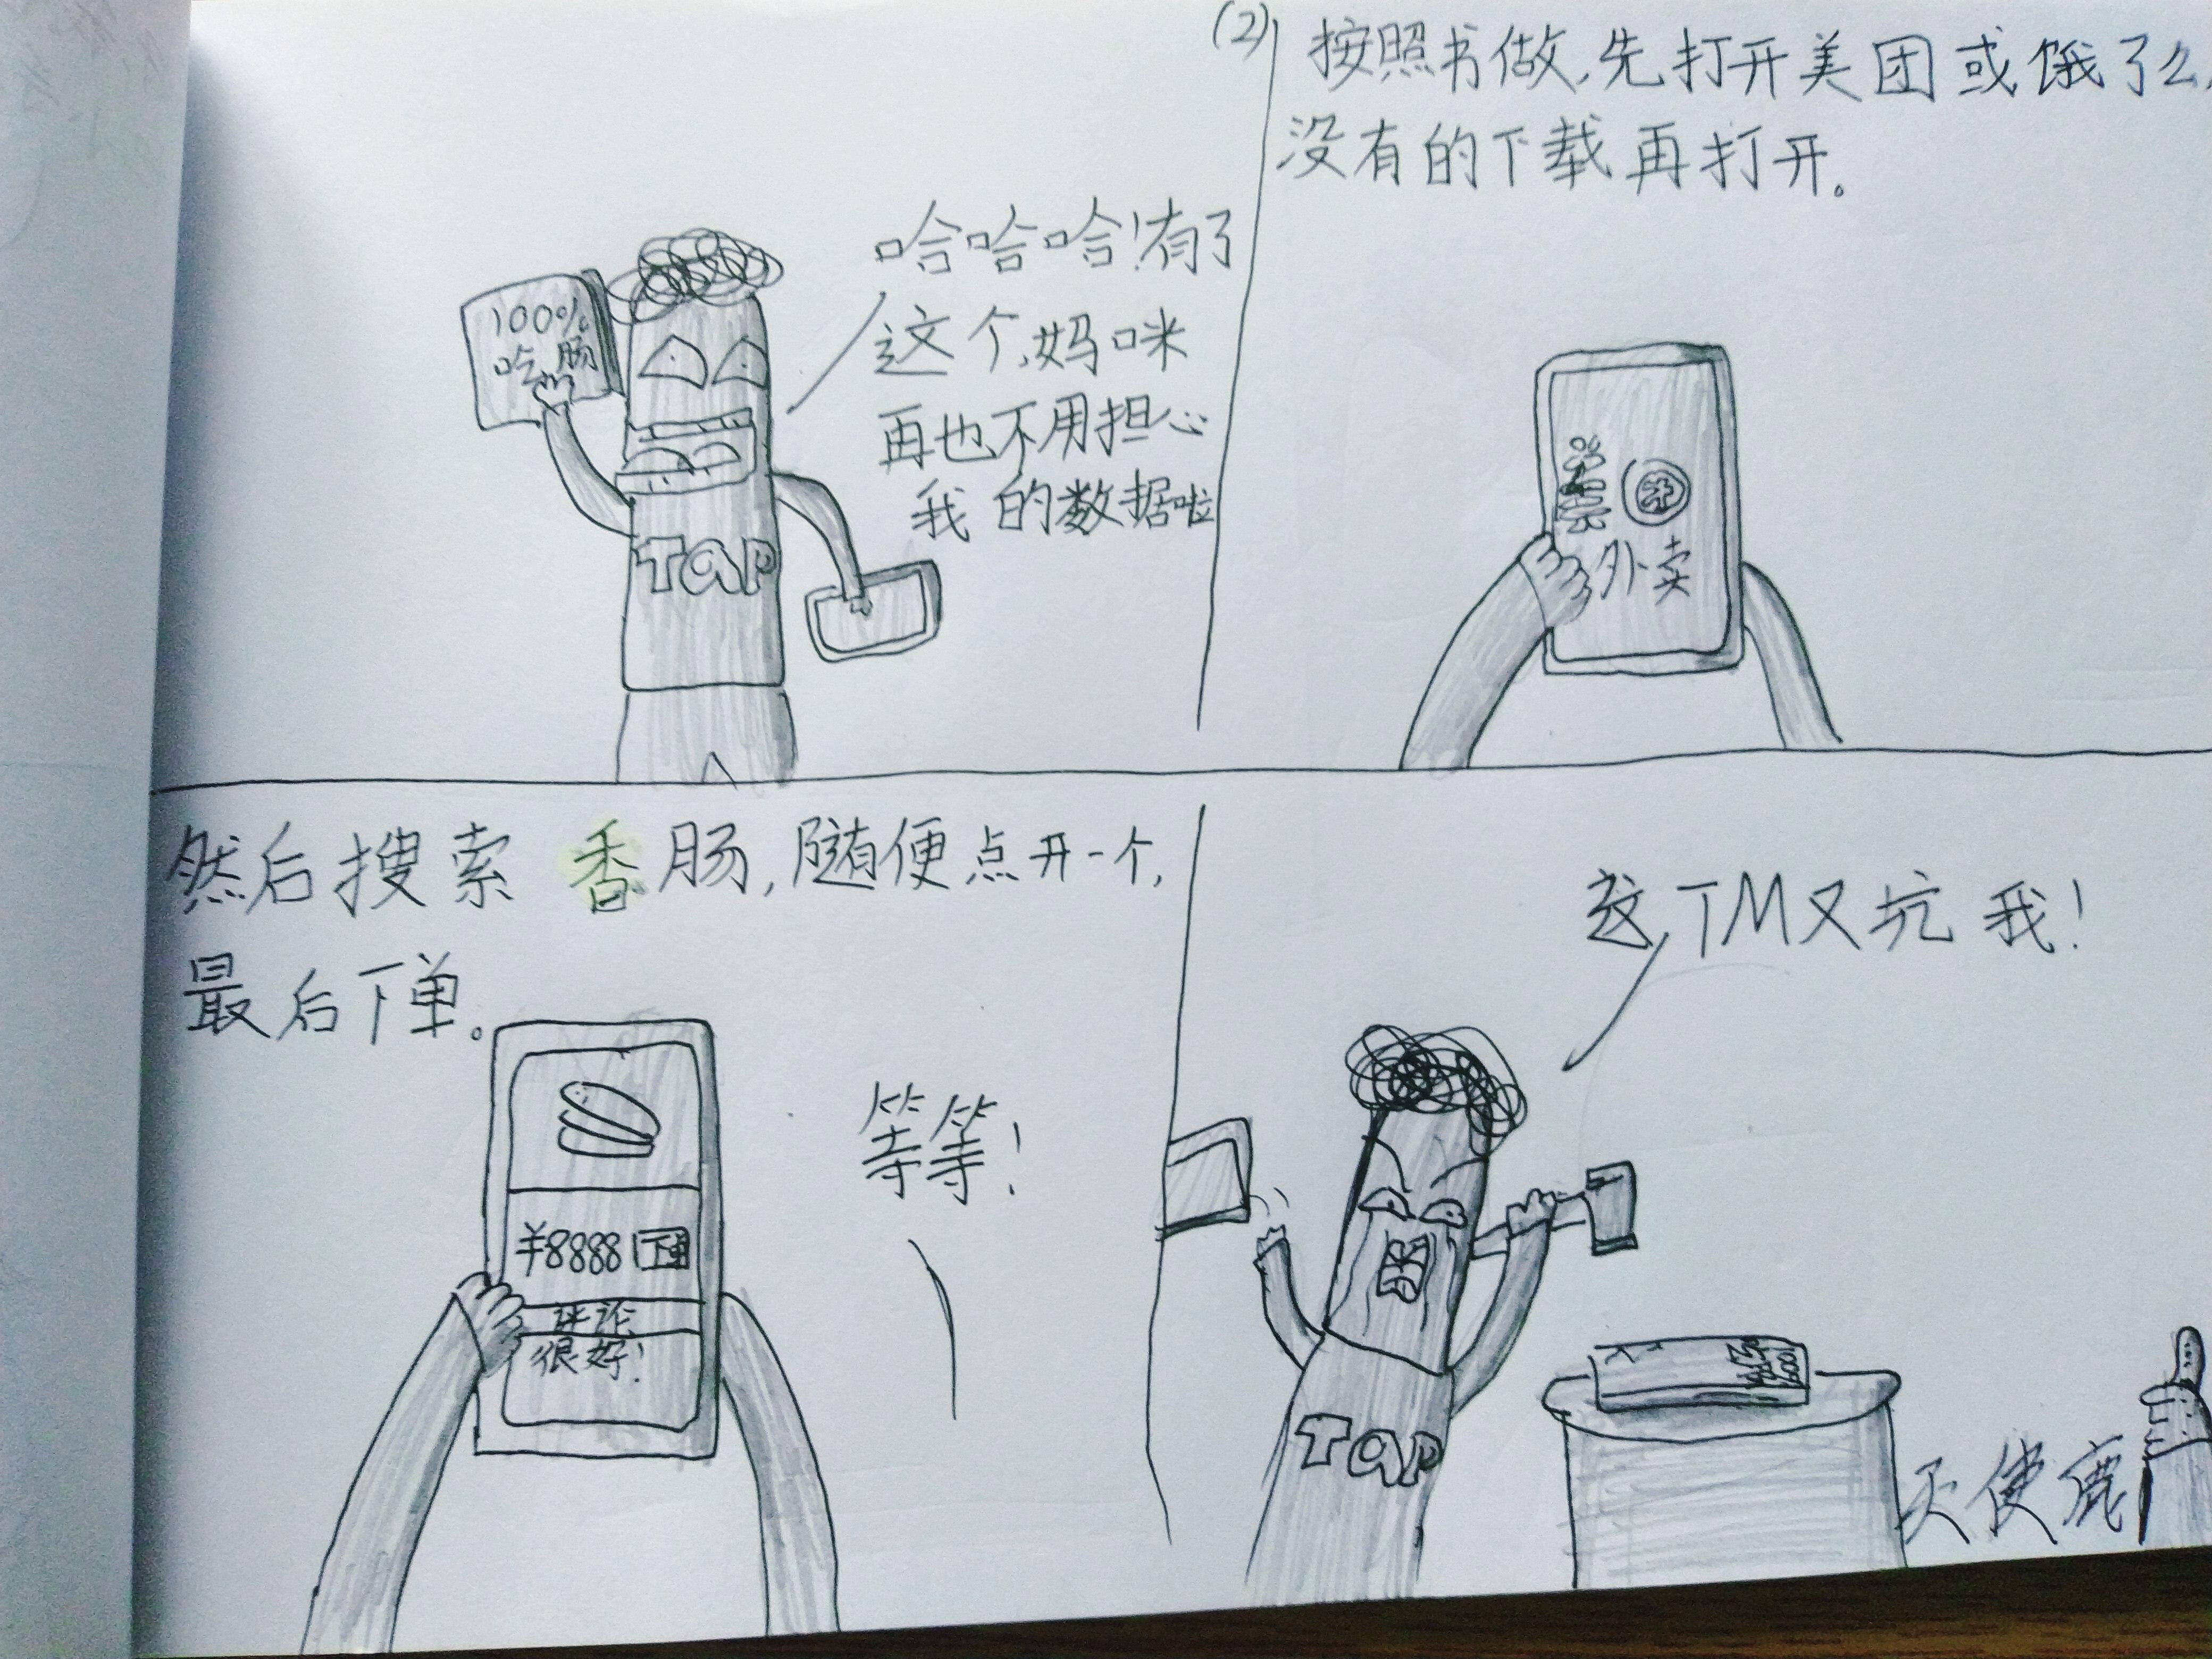 (2)
100%
哈哈哈!有了
这个,妈咪
再也不用担心
我的数据啦
Tap
按照书做,先打开美团或饿了么,
没有的下载再打开。
外卖
然后搜索香肠,随便点开一个,
最后下单。
等等!
¥8888 下单
评论
很好!
这TM又坑我!
Tap
天使鹿